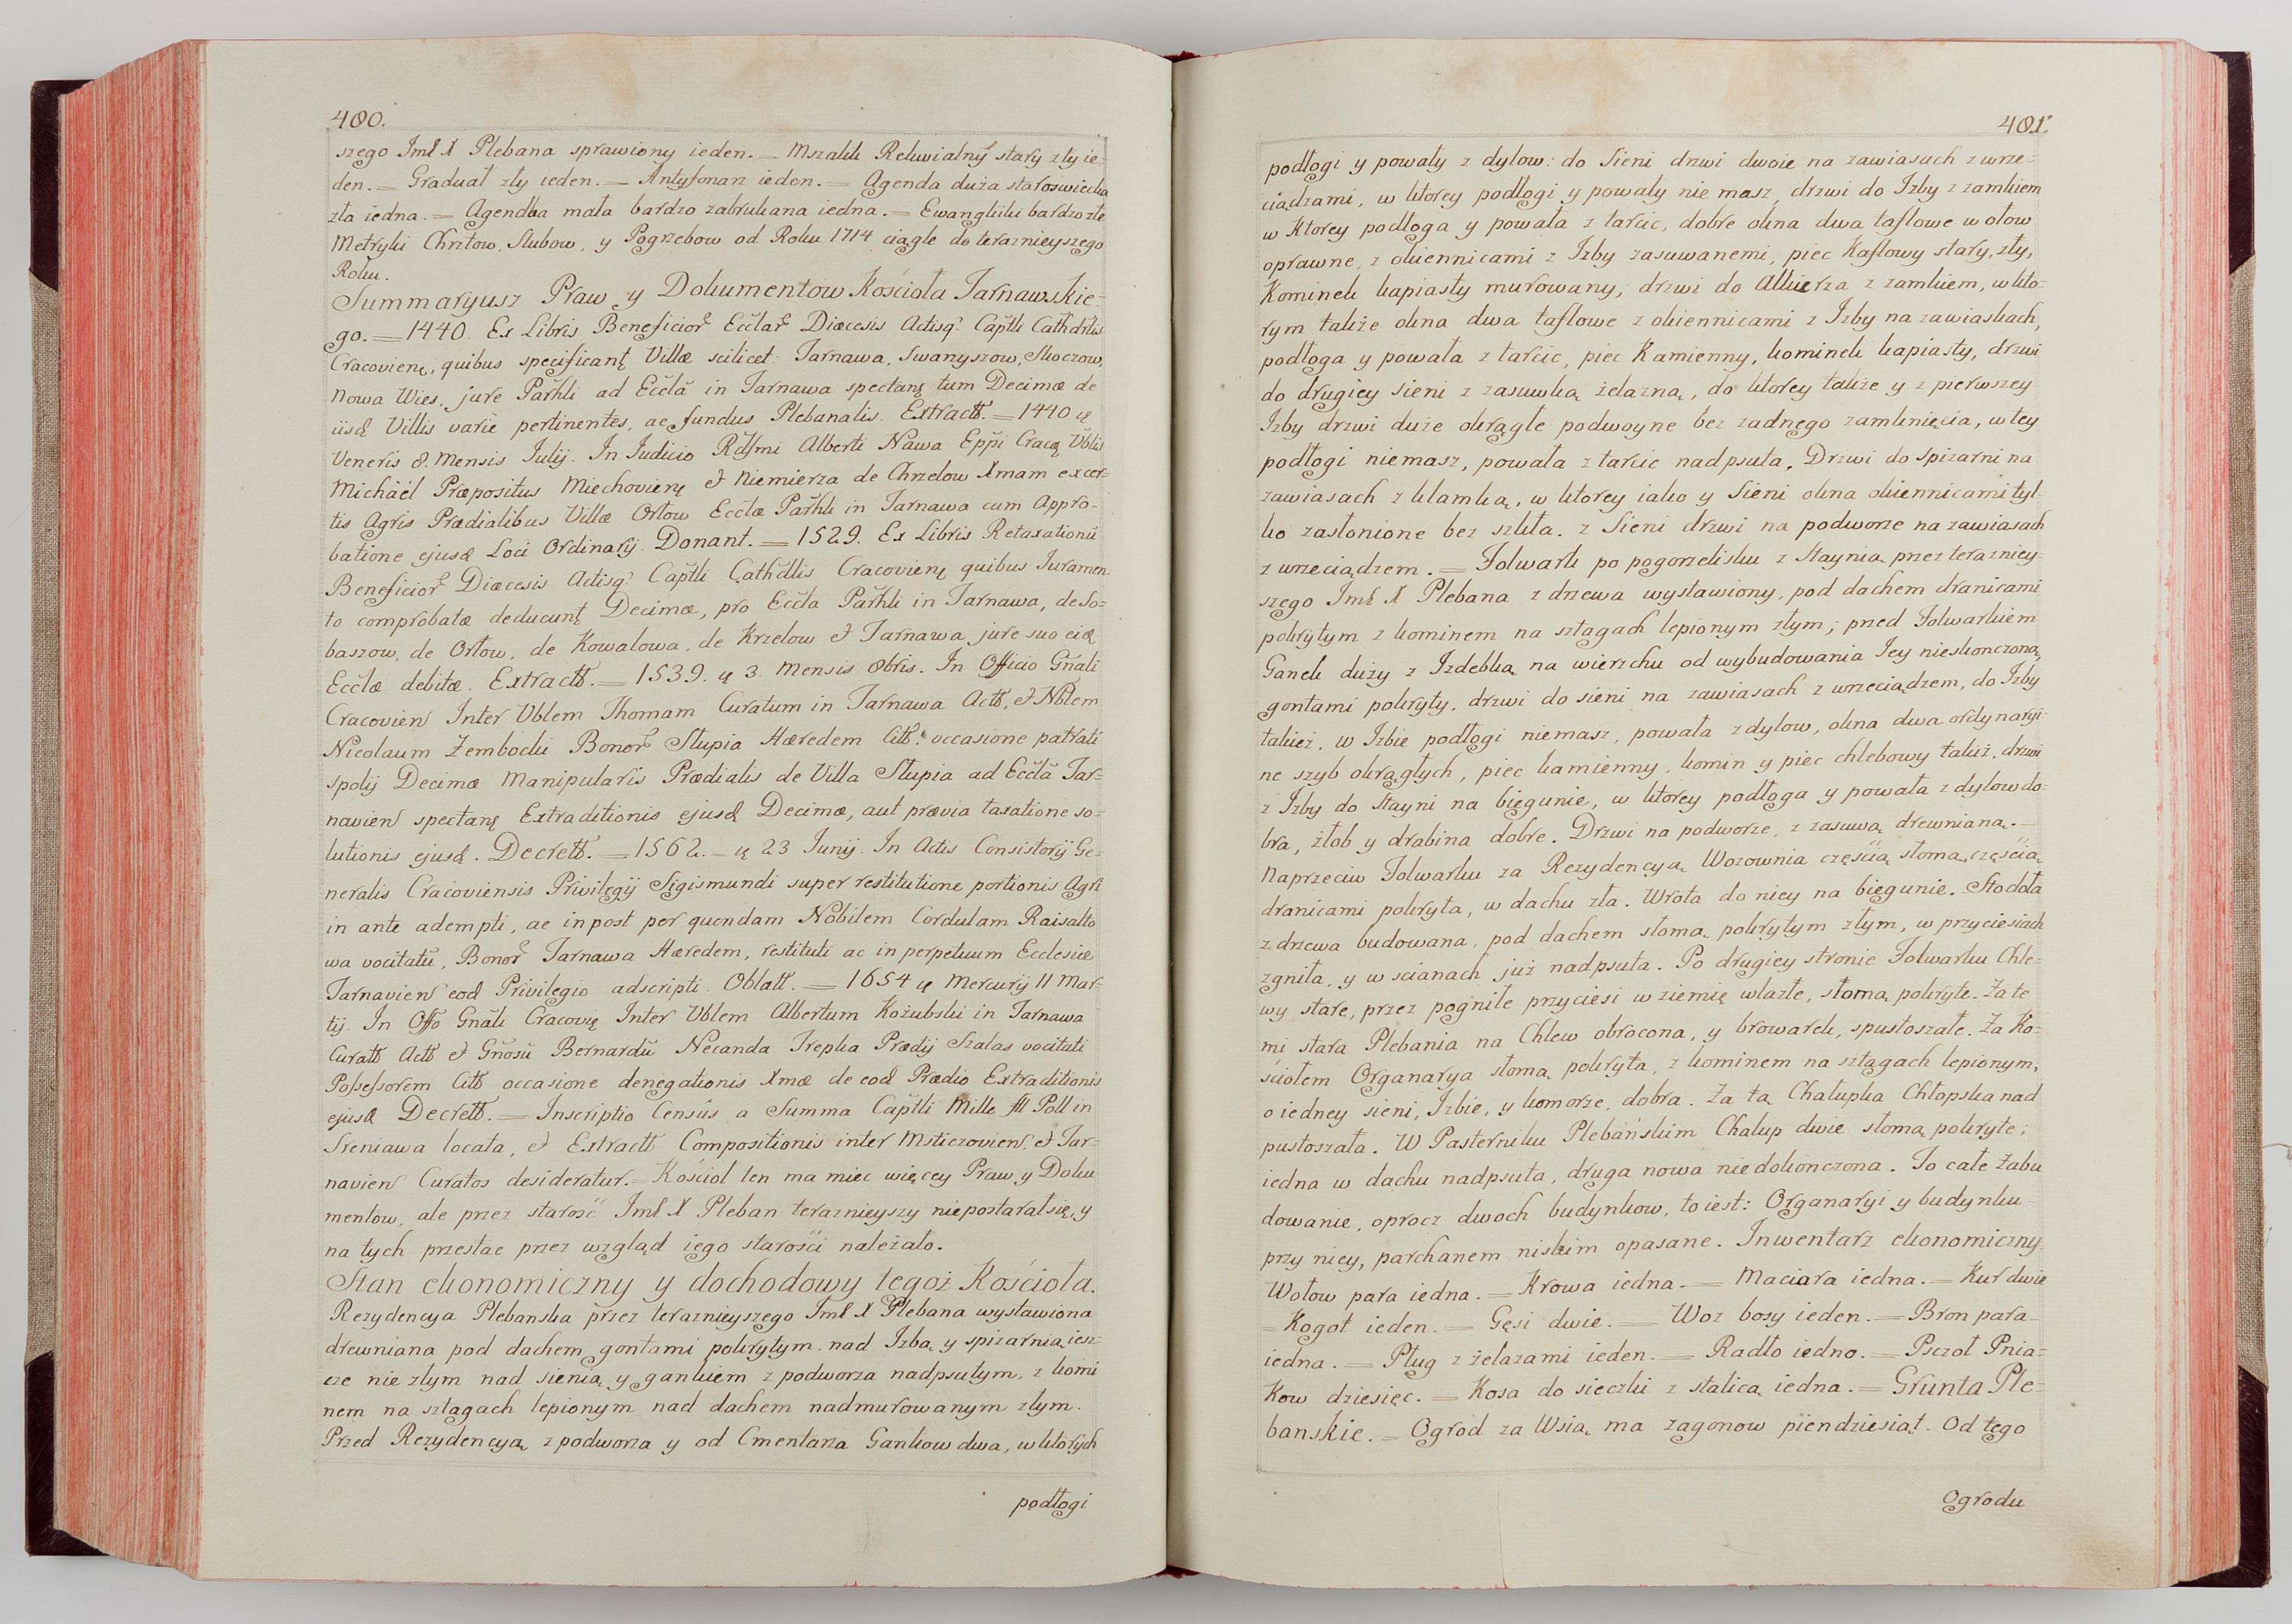 400.
szego Jmć X Plebana sprawiony ieden. = Mszalik Rekwialny stary zły ie-
den. = Graduał zły ieden. = Antyfonarz ieden. = Agenda duża staroswiecka
zła iedna. = Agendka mała bardzo zabrukana iedna. = Ewangliiki bardzo złe
Metryki Chrztow, Slubow, y Pogrzebow od Roku 1714 ciągle do teraznieyszego
Roku.
Summaryusz Praw y Dokumentow Kościoła Tarnawskie-
go. = 1440. Ex Libris Beneficior Ecclar Diæcesis Actisq Captli Cathdrlis
Cracovien, quibus specificant Villæ scilicet: Tarnawa, Swanyszow, Skoczow,
Nowa Wies, jure Parhli ad Ecclã in Tarnawa spectan, tum Decimæ de
iisd Villis varie pertinentes, ac fundus Plebanalis. Extractt. = 1440
Veneris 8. Mensis Iulij. In Iudicio Rdsmi Alberti Nawa Eppi Crac Vblis
Michäel Præpositus Miechovien et Niemierza de Chrzelow Xmam ex cer-
tis Agris Prædialibus Villæ Ortow Ecclæ Parhli in Tarnawa cum Appro-
batione ejusd Loci Ordinarij. Donant. = 1529. Ex Libris Retaxationũ
Beneficior Diæcesis Actisq Captli Cathdlis Cracovien quibus Iuramen-
to comprobatæ deducunt Decimæ, pro Eccla Parhli in Tarnawa, de So=
baszow, de Ortow, de Kowalowa, de Krzelow et Tarnawa jure suo eid
Ecclæ debitæ. Extractt. = 1539. 3 Mensis 8bris. In Officio Gnali
Cracovien Inter Vblem Thomam Curatum in Tarnawa Actt, et Nblem
Nicolaum Zembocki Bonor Słupia Hæredem Citt. occasione patrati
spolij Decimæ Manipularis Prædialis de Villa Słupia ad Ecclã Tar-
navien spectan Extraditionis ejusd Decimæ, aut prævia taxatione so=
lutionis ejusd. Decrett. = 1562. = 23 Iunij. In Actis Consistorij Ge-
neralis Cracoviensis Privilegij Sigismundi super restitutione portionis Agri
in ante adempti, ac in post per quendam Nobilem Cordulam Raisalto
wa vocitatũ, Bonor Tarnawa Hæredem, restituti ac in perpetuum Ecclesiæ
Tarnavien eod Privilegio adscripti. Oblatt. = 1654 Mercurij 11 Mar-
tij. In Offo Gnãli Cracovie Inter Vblem Albertum Kożubski in Tarnawa
Curatt Actt et Gñosũ Bernardũ Necanda Trepka Prædij Szalas vocitati
Possessorem Citt occasione denegationis Xmæ de eod Prædio Extraditionis
ejusd Decrett. = Inscriptio Censũs a Summa Captli Mille fll Poll in
Sreniawa locata, et Extractt Compositionis inter Msticzovien, et Tar-
navien Curatos desideratur. = Kościoł ten ma miec więcey Praw y Doku
mentow, ale przez starość Jmć X Pleban teraznieyszy niepostarał się, y
na tych przestac przez wzgląd iego starości należało.
Stan ekonomiczny y dochodowy tegoż Kościoła.
Rezydencya Plebanska przez teraznieyszego Jmć X Plebana wystawiona
drewniana pod dachem gontami pokrytym, nad Izbą y spizarnią iesz-
cze nie złym nad sienią y gankiem z podworza nadpsutym, z komi
nem na sztagach lepionym nad dachem nadmurowanym złym.
Przed Rezydencyą z podworza y od Cmentarza Gankow dwa, w ktorych
podłogi
401.
podłogi y powały z dylow: do Sieni drzwi dwoie na zawiasach z wrze-
ciądzami, w ktorey podłogi y powały nie masz, drzwi do Izby z zamkiem
w Ktorey podłoga y powała z tarcic, dobre okna dwa taflowe w ołow
oprawne, z okiennicami z Izby zasuwanemi, piec Kaflowy stary, zły,
Kominek kapiasty murowany, drzwi do Alkierza z zamkiem, w kto-
rym także okna dwa taflowe z okiennicami z Izby na zawiaskach,
podłoga y powała z tarcic, piec Kamienny, kominek kapiasty, drzwi
do drugiey sieni z zasuwką żelazną, do ktorey także y z pierwszey
Izby drzwi duże okrągłe podwoyne bez żadnego zamknięcia, w tey
podłogi niemasz, powała z tarcic nadpsuta. Drzwi do spizarni na
zawiasach z klamką, w ktorey iako y Sieni okna okiennicami tyl-
ko zasłonione bez szkła. z Sieni drzwi na podworze na zawiasach
z wrzeciądzem. = Folwark po pogorzelisku z Staynią przez terazniey-
szego Jmć X Plebana z drzewa wystawiony, pod dachem dranicami
pokrytym z kominem na sztagach lepionym złym; przed Folwarkiem
Ganek duży z Izdebką na wierzchu od wybudowania Iey nieskonczoną,
gontami pokryty, drzwi do sieni na zawiasach z wrzeciądzem, do Izby
takież, w Izbie podłogi niemasz, powała z dylow, okna dwa ordynaryi-
ne szyb okrągłych, piec kamienny, komin y piec chlebowy takiż, drzwi
z Izby do Stayni na biegunie, w ktorey podłoga y powała z dylow do-
bra, żłob y drabina dobre. Drzwi na podworze, z zasuwą drewnianą. -
Naprzeciw Folwarku za Rezydencyą Wozownia częścią słomą, częścią
dranicami pokryta, w dachu zła. Wrota do niey na biegunie. Stodoła
z drzewa budowana, pod dachem słomą pokrytym złym, w przyciesiach
zgniła, y w scianach już nadpsuta. Po drugiey stronie Folwarku Chle-
wy stare, przez pogniłe przyciesi w ziemię wlazłe, słomą pokryte. Za te
mi stara Plebania na Chlew obrocona, y browarek, spustoszałe. Za Ko-
ściołem Organarya słomą pokryta, z kominem na sztagach lepionym,
o iedney sieni, Izbie, y komorze, dobra. Za tą Chałupka Chłopska nad
pustoszała. W Pasterniku Plebańskim Chałup dwie słomą pokryte;
iedna w dachu nadpsuta, druga nowa niedokonczona. To całe Zabu
dowanie, oprocz dwoch budynkow, to iest: Organaryi y budynku
przy niey, parchanem niskim opasane. Inwentarz ekonomiczny.
Wołow para iedna. = Krowa iedna. = Maciora iedna. = Kur dwie
= Kogot ieden. = Gęsi dwie. = Woz bosy ieden. = Bron para
iedna. = Pług z żelazami ieden. = Radło iedno. = Pszczoł Pnia=
Kow dziesięc. = Kosa do sieczki z stalicą iedna. = Grunta Ple=
banskie. = Ogrod za Wsią ma zagonow piendziesiąt. Od tego
Ogrodu